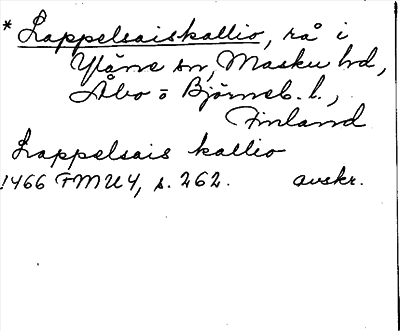 * Lappelsaiskallio, rå i
Yläne sn, Masku hd,
Åbo o Björneb. l.,
Finland
Lappelsais kallio
1466 FMU 4, s. 262. avskr.